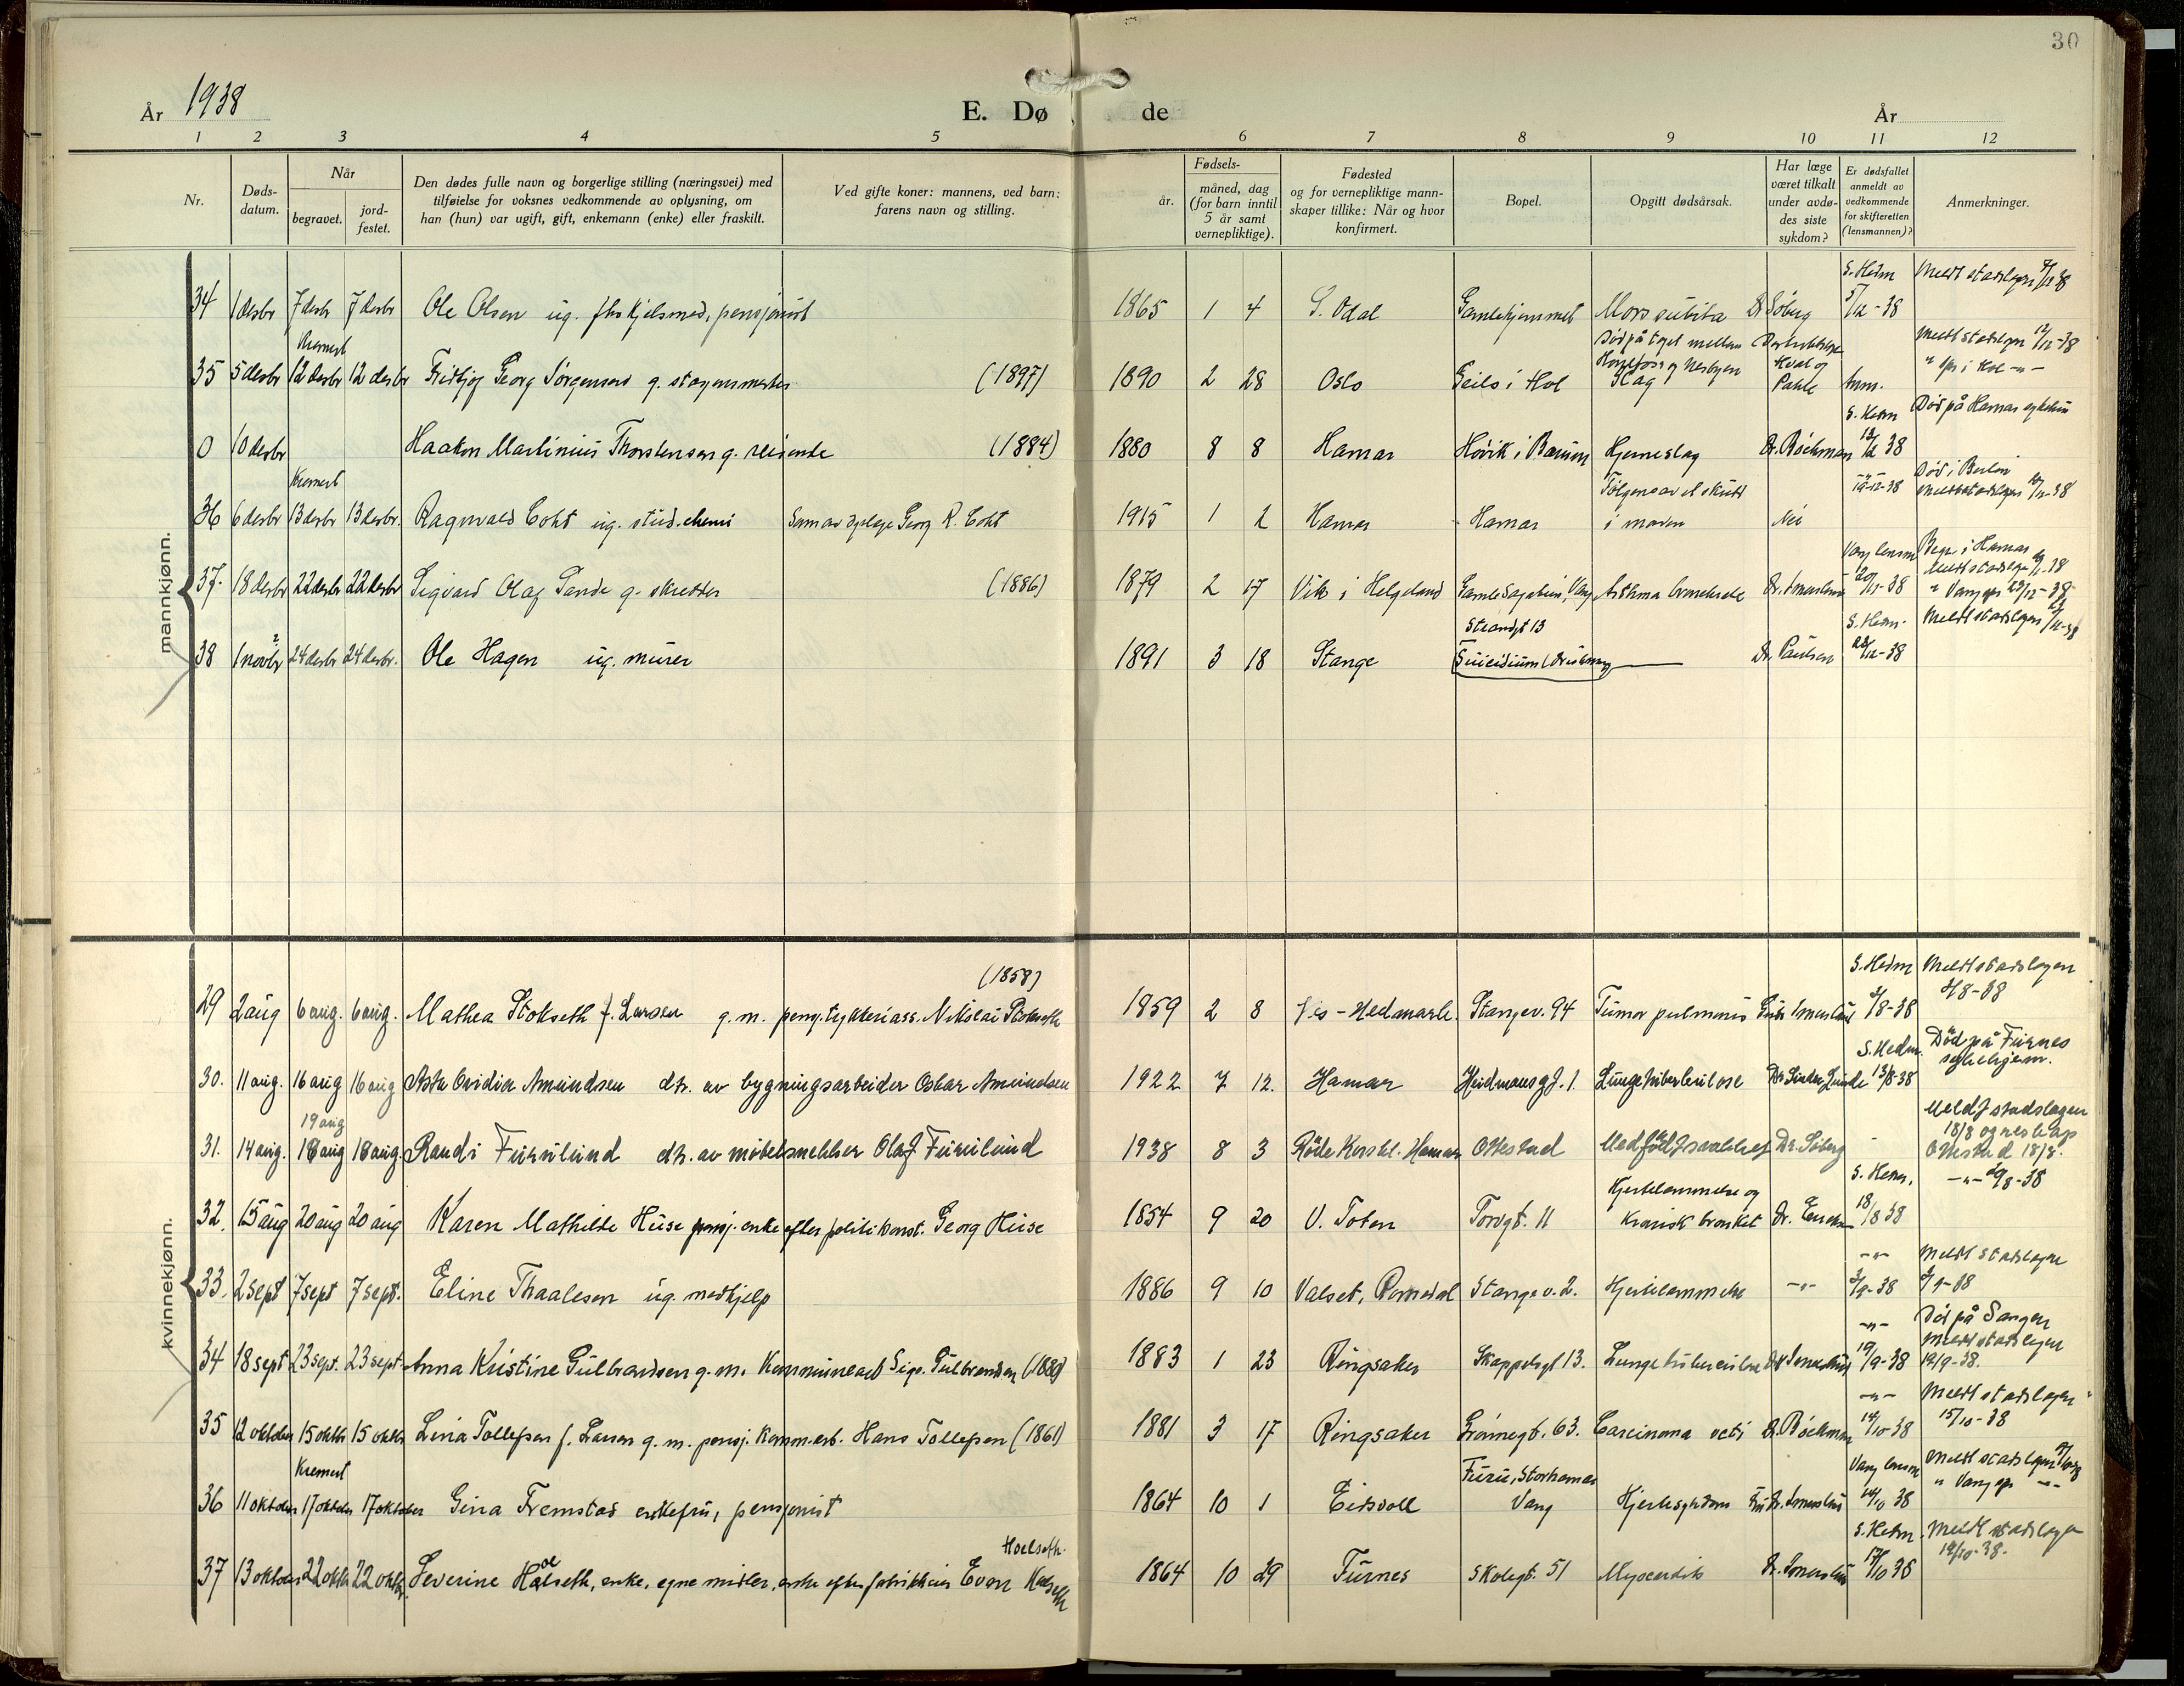 30
År 1938
E. Døde
År
1 2 3 4 5 6 7 8 9 10 11 12
Nr.
Døds-
datum.
Når
begravet.
jord-
festet.
Den dødes fulle navn og borgerlige stilling (næringsvei) med
tilføielse for voksnes vedkommende av oplysning, om
han (hun) var ugift, gift, enkemann (enke) eller fraskilt.
Ved gifte koner: mannens, ved barn:
farens navn og stilling.
Fødsels-
år.
måned, dag
(for barn inntil
5 år samt
vernepliktige).
Fødested
og for vernepliktige mann-
skaper tillike: Når og hvor
konfirmert.
Bopel.
Opgitt dødsårsak.
Har læge
været tilkalt
under avdø-
des siste
sykdom?
Er dødsfallet
anmeldt av
vedkommende
for skifteretten
(lensmannen)?
Anmerkninger.
mannkjønn.
34 1 desbr 7 desbr 7 desbr Ole Olsen ug. fhv kjelsmed, pensjonist 1865 1 4 S. Odal Gamlehjemmet Mors subita Dr Soberg S. Hedm 5/12-38 Meldt stadslegen
35 5 desbr Kremert 12 desbr 12 desbr Fridtjof Georg Jørgensen g. stasjonsmester (1897) 1890 2 28 Oslo Geilo i Hol Død på toget mellem Hønefoss og Nesbyen Slag Anm. Meldt stadslegen 12/12-38
0 10 desbr Haakon Martinius Thorstensen g. reisende (1884) 1880 8 8 Hamar Høvik i Bærum Hjerneslag Dr. Bøckman S. Hedm 12/12 38 Død på Hamar sykehus
36 6 desbr Kremert 13 desbr 13 desbr. Ragnvald Coht ug. stud. chemi Sønn av Georg R. Coht 1915 1 2 Hamar Hamar Følgene av et skudd i maven Nei Død i Berlin Meldt stadslegen
37. 18 desbr 22 desbr 22 desbr Sigvard Olaf Sande g. skredder (1886) 1879 2 17 Vik i Helgeland Vang Asthma bronchiale Vang lensm 20/12-38 Begr. i Hamar
38 1 novbr 24 desbr 24 desbr. Ole Hagen ug. murer 1891 3 18 Stange Strandgt 13 Suicidium (drukning) Dr. Paulsen S. Hedm. 22/12-38 Meldt stadslegen
kvinnekjønn.
29 2 aug 6 aug. 6 aug. Mathea Stokseth f. Larsen g. m. pens. Nikolai Stokseth (1858) 1859 2 8 Nes-Hedmark. Stangev. 94 Tumor pulmonis S. Hedm 3/8-38 Meldt stadslegen
30. 11 aug. 16 aug 16 aug Asta Ovidia Amundsen dtr. av bygningsarbeider Oskar Amundsen 1922 7 12. Hamar Heidmansgt. 1 Lungetuberkulose S. Hedm. 13/8-38 Død på Furnes sykehjem.
31. 14 aug. 19 aug 18 aug 18 aug. Randi Furulund dtr. av møbelsnekker Olaf Furulund 1938 8 3 Røde Kors kl. Hamar Ottestad Medfødt svakhet Dr. Soberg Meldt stadslegen 18/8 Ottestad 18/8.
32. 15 aug 20 aug 20 aug Karen Mathilde Huse pensj. enke efter politikonst. Georg Huse 1854 9 20 V. Toten Torvgt. 11 Hjertelammelse og kronisk bronkit S. Hedm. 18/8 38
33. 2 sept 7 sept 7 sept. Eline Thaalesen ug. nedhjelp 1886 9 10 Valset, Romedal Stangev. 2. Hjertelammelse -"- -"- 3/9-38 Meldt stadslegen
34 18 sept 23 sept. 23 sept. Anna Kristine Gulbrandsen g. m. Kommunearb Sigv. Gulbrandsen (1880) 1883 1 23 Ringsaker Skappelsgt 13. Lungetuberkulose -"- 19/9-38 Død på Sangen Meldt stadslegen 19/9-38.
35 12 oktober 15 oktbr 15 oktbr Lina Tollefsen f. Larsen g. m. pensj. komm.arb. Hans Tollefsen (1861) 1881 3 17 Ringsaker Grønnegt. 63. Carcinoma recti Dr. Bøckman -"- 14/10-38 Meldt stadslegen 15/10-38
36 11 oktober Kremert 17 oktober 17 oktober Gina Fremstad enkefru, pensjonist 1864 10 1 Eidsvoll Furu, Storhamar Vang Hjertesykdom Vang lensm 14/10 38 Meldt stadslegen
37 13 oktober 22 oktbr 22 oktbr. Severine Hoelseth, enke, egne midler, enke efter fabrikkeier Even Hoelseth. 1864 10 29 Furnes Skolegt. 51 Myocardit S. Hedm. 17/10 38 Meldt stadslegen 19/10-38.